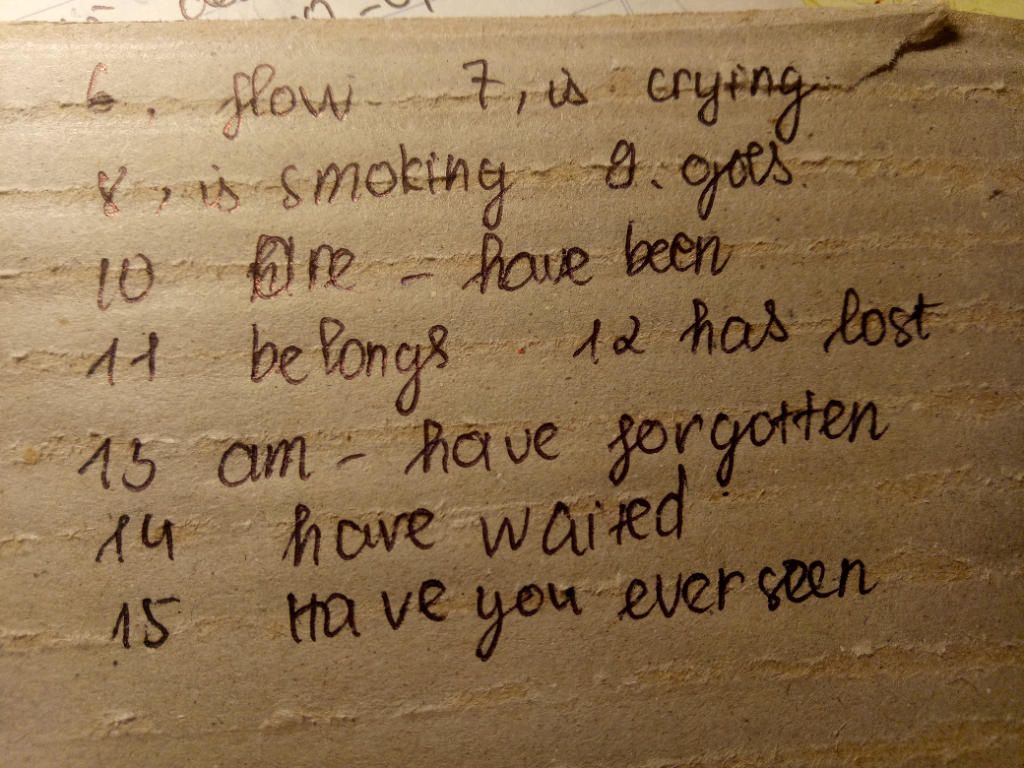 6. flow 7, is crying
8, is smoking 9. goes.
10 Are - have been
11 belongs 12 has lost
13 am - have forgotten
14 have waited
15 Have you ever seen